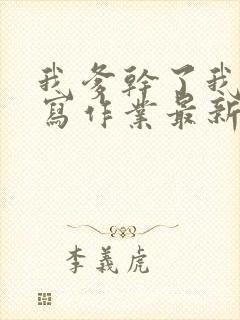 我爹幹了我
寫作業最新
李義虎